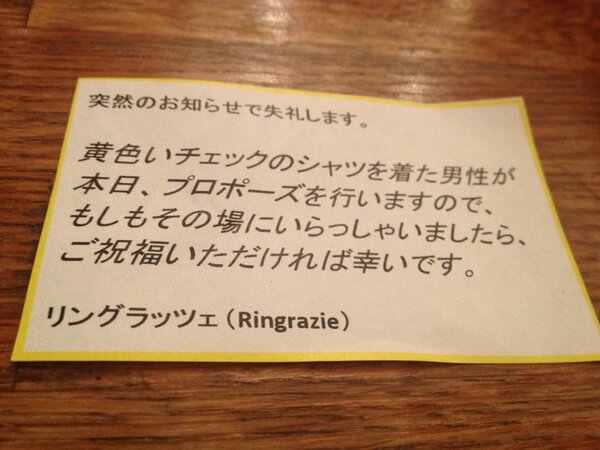 突然のお知らせで失礼します。
黄色いチェックのシャツを着た男性が
本日、プロポーズを行いますので、
もしもその場にいらっしゃいましたら、
ご祝福いただければ幸いです。
リングラッツェ（Ringrazie）